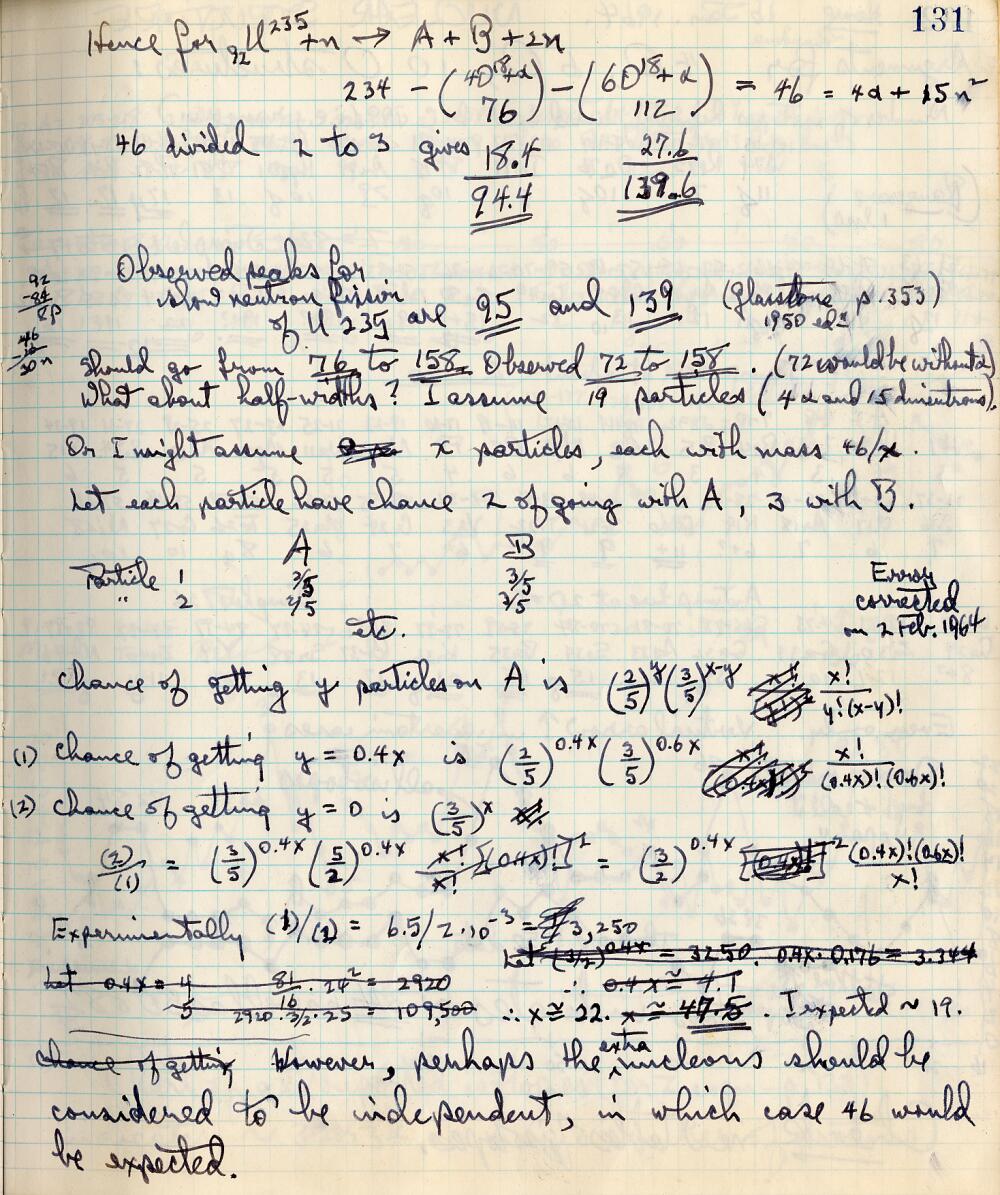 131
Hence for ₉₂U²³⁵ + n → A + B + 2n
234 − (40¹⁸+α / 76) − (60¹⁸+α / 112) = 46 = 4α + 15 n²
46 divided 2 to 3 gives 18.4 27.6
94.4 139.6
Observed peaks for
slow neutron fission
of U 235 are 95 and 139 (Glasstone p. 353)
1950 edn
92
-84
8p
46
30n
Should go from 76 to 158. Observed 72 to 158. (72 would be without α)
What about half-widths? I assume 19 particles (4 α and 15 dineutrons).
Or I might assume x particles, each with mass 46/x.
Let each particle have chance 2 of going with A, 3 with B.
A B
Particle 1 2/5 3/5
" 2 2/5 3/5
etc.
Error
corrected
on 2 Feb. 1964
Chance of getting y particles on A is (2/5)^y (3/5)^x-y x!/y!(x-y)!
(1) Chance of getting y = 0.4x is (2/5)^0.4x (3/5)^0.6x x!/(0.4x)!(0.6x)!
(2) Chance of getting y = 0 is (3/5)^x
(2)/(1) = (3/5)^0.4x (5/2)^0.4x x!/x! [(0.4x)!]² = (3/2)^0.4x (0.4x)!(0.6x)!/x!
Experimentally (1)/(2) = 6.5/2·10⁻³ = 3,250
Let (3/2)^0.4x = 3250. 0.4x · 0.176 = 3.344
Let 0.4x = 4 81/16 · 24² = 2920 ∴ 0.4x ≅ 4.1
5 2920 · 3/2 · 25 = 109,500 ∴ x ≅ 22. x ≅ 47.5. I expected ~ 19.
Chance of getting However, perhaps the extra nucleons should be
considered to be independent, in which case 46 would
be expected.